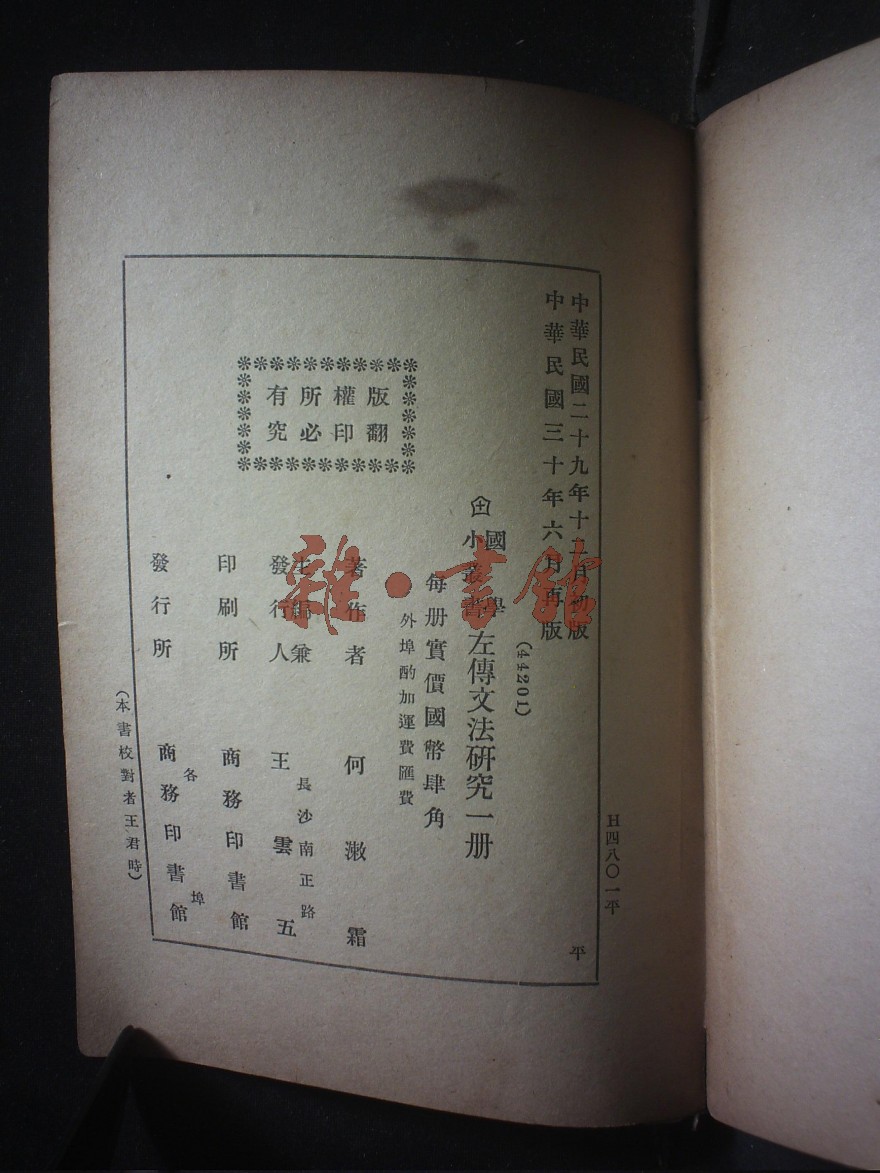 H四八〇一平
中華民國二十九年十二月初版
中華民國三十年六月再版
平
(44201)
國學
小叢書
左傳文法研究一册
每册實價國幣肆角
外埠酌加運費匯費
版權所有
翻印必究
著作者 何漱霜
主編兼
發行人
長沙南正路
王雲五
印刷所 商務印書館
各埠
發行所 商務印書館
(本書校對者王君時)
雜·書館